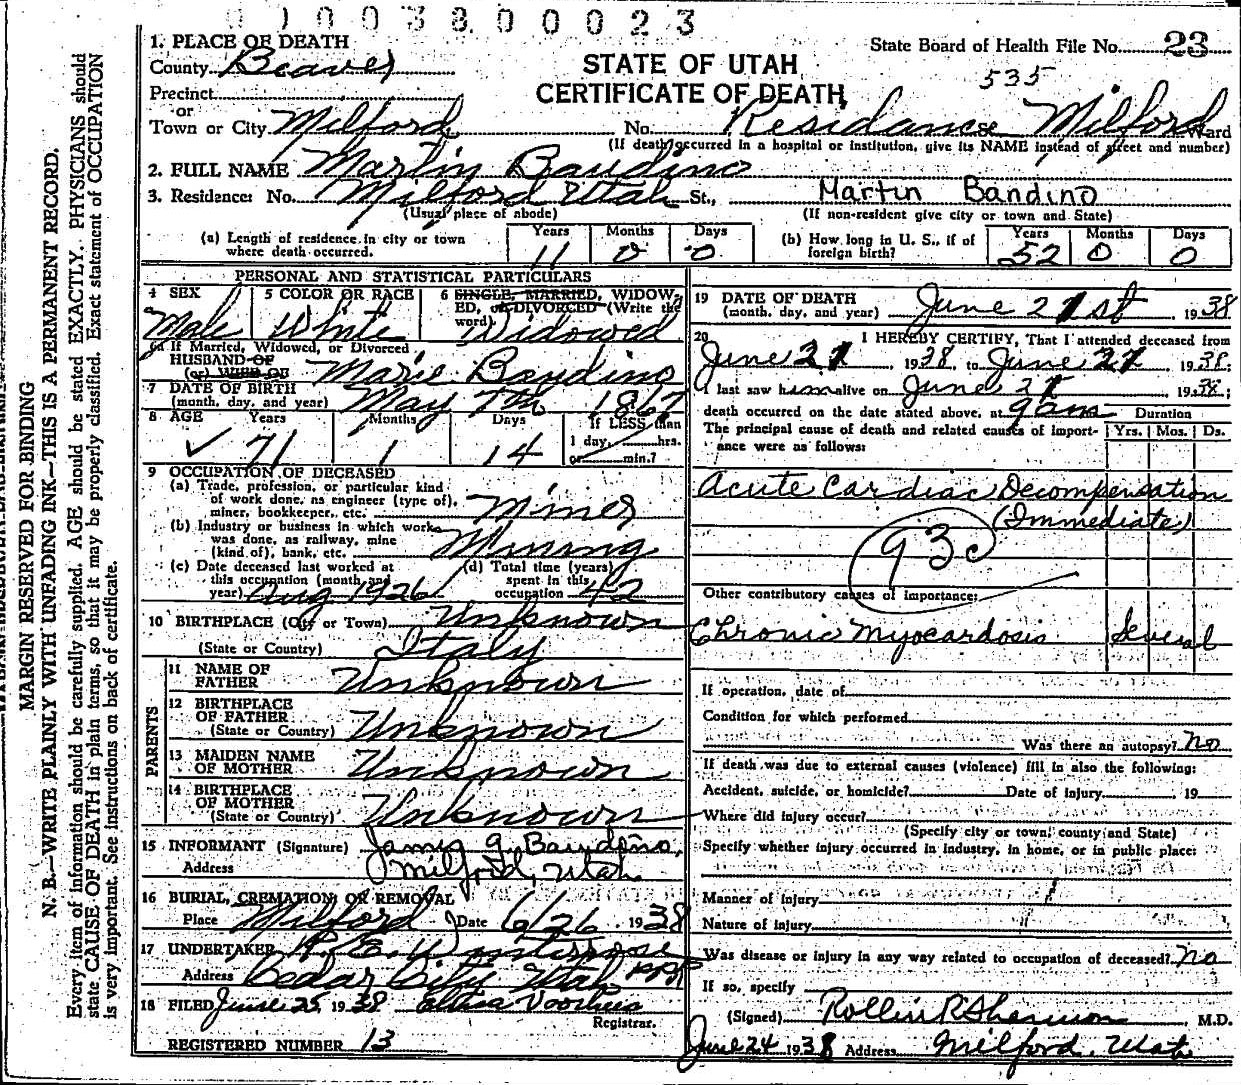 01003800023
1. PLACE OF DEATH
County Beaver
Precinct
or
Town or City Milford
STATE OF UTAH
CERTIFICATE OF DEATH
State Board of Health File No. 23
535
No. Residance Milford Ward
(If death occurred in a hospital or institution, give its NAME instead of street and number)
2. FULL NAME Martin Baudino
3. Residence: No. Milford Utah St., Martin Bandino
(Usual place of abode) (If non-resident give city or town and State)
(a) Length of residence in city or town where death occurred. Years 11 Months 0 Days 0
(b) How long in U. S., if of foreign birth? Years 52 Months 0 Days 0
PERSONAL AND STATISTICAL PARTICULARS
4 SEX Male
5 COLOR OR RACE White
6 SINGLE, MARRIED, WIDOWED, or DIVORCED (Write the word) Widowed
6a If Married, Widowed, or Divorced
HUSBAND OF
(or) WIFE OF Marie Baudino
7 DATE OF BIRTH
(month, day, and year) May 7th 1867
8 AGE Years 71 Months 1 Days 14 If LESS than 1 day, hrs. or min.?
9 OCCUPATION OF DECEASED
(a) Trade, profession, or particular kind
of work done, as engineer (type of),
miner, bookkeeper, etc. Miner
(b) Industry or business in which work
was done, as railway, mine
(kind of), bank, etc. Mining
(c) Date deceased last worked at
this occupation (month and
year) Aug 1926
(d) Total time (years)
spent in this
occupation 42
10 BIRTHPLACE (City or Town) Unknown
(State or Country) Italy
PARENTS
11 NAME OF
FATHER Unknown
12 BIRTHPLACE
OF FATHER
(State or Country) Unknown
13 MAIDEN NAME
OF MOTHER Unknown
14 BIRTHPLACE
OF MOTHER
(State or Country) Unknown
15 INFORMANT (Signature) Baudino,
Address Milford, Utah
16 BURIAL, CREMATION, OR REMOVAL
Place Milford Date 6/26 1938
17 UNDERTAKER
Address Cedar City Utah
18 FILED June 25, 1938 Voorhees
Registrar.
REGISTERED NUMBER 13
19 DATE OF DEATH
(month, day, and year) June 21st, 1938
20 I HEREBY CERTIFY, That I attended deceased from
June 21, 1938, to June 21, 1938;
I last saw him alive on June 21, 1938;
death occurred on the date stated above, at 9 am Duration
The principal cause of death and related causes of import- Yrs. Mos. Ds.
ance were as follows:
Acute Cardiac Decompensation
(Immediate)
93c
Other contributory causes of importance:
Chronic Myocardosis Several
If operation, date of
Condition for which performed
Was there an autopsy? No
If death was due to external causes (violence) fill in also the following:
Accident, suicide, or homicide? Date of injury 19
Where did injury occur?
(Specify city or town, county and State)
Specify whether injury occurred in industry, in home, or in public place:
Manner of injury
Nature of injury
Was disease or injury in any way related to occupation of deceased? No
If so, specify
(Signed) Rollin R Sherman, M.D.
June 24 1938 Address Milford, Utah
MARGIN RESERVED FOR BINDING
N. B.—WRITE PLAINLY WITH UNFADING INK—THIS IS A PERMANENT RECORD.
Every item of information should be carefully supplied. AGE should be stated EXACTLY. PHYSICIANS should
state CAUSE OF DEATH in plain terms, so that it may be properly classified. Exact statement of OCCUPATION
is very important. See instructions on back of certificate.